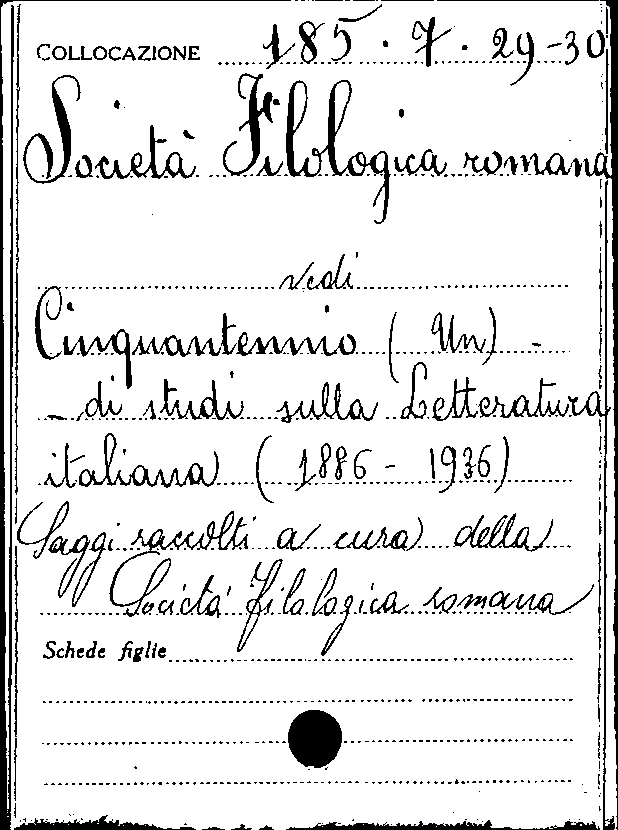 COLLOCAZIONE 185.7.29-30
Società Filologica romana
vedi
Cinquantennio (Un) -
- di studi sulla Letteratura
italiana (1886 - 1936)
Saggi raccolti a cura della
Società filologica romana
Schede figlie